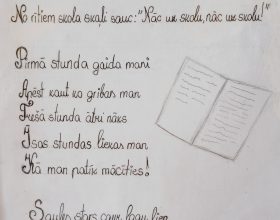 No rītiem skola skaļi sauc: "Nāc uz skolu, nāc uz skolu!"
Pirmā stunda gaida mani
Apēst kaut ko gribas man
Trešā stunda ātri nāks
Īsas stundas liekas man
Kā man patīk mācīties!
Saules stars caur logu lien